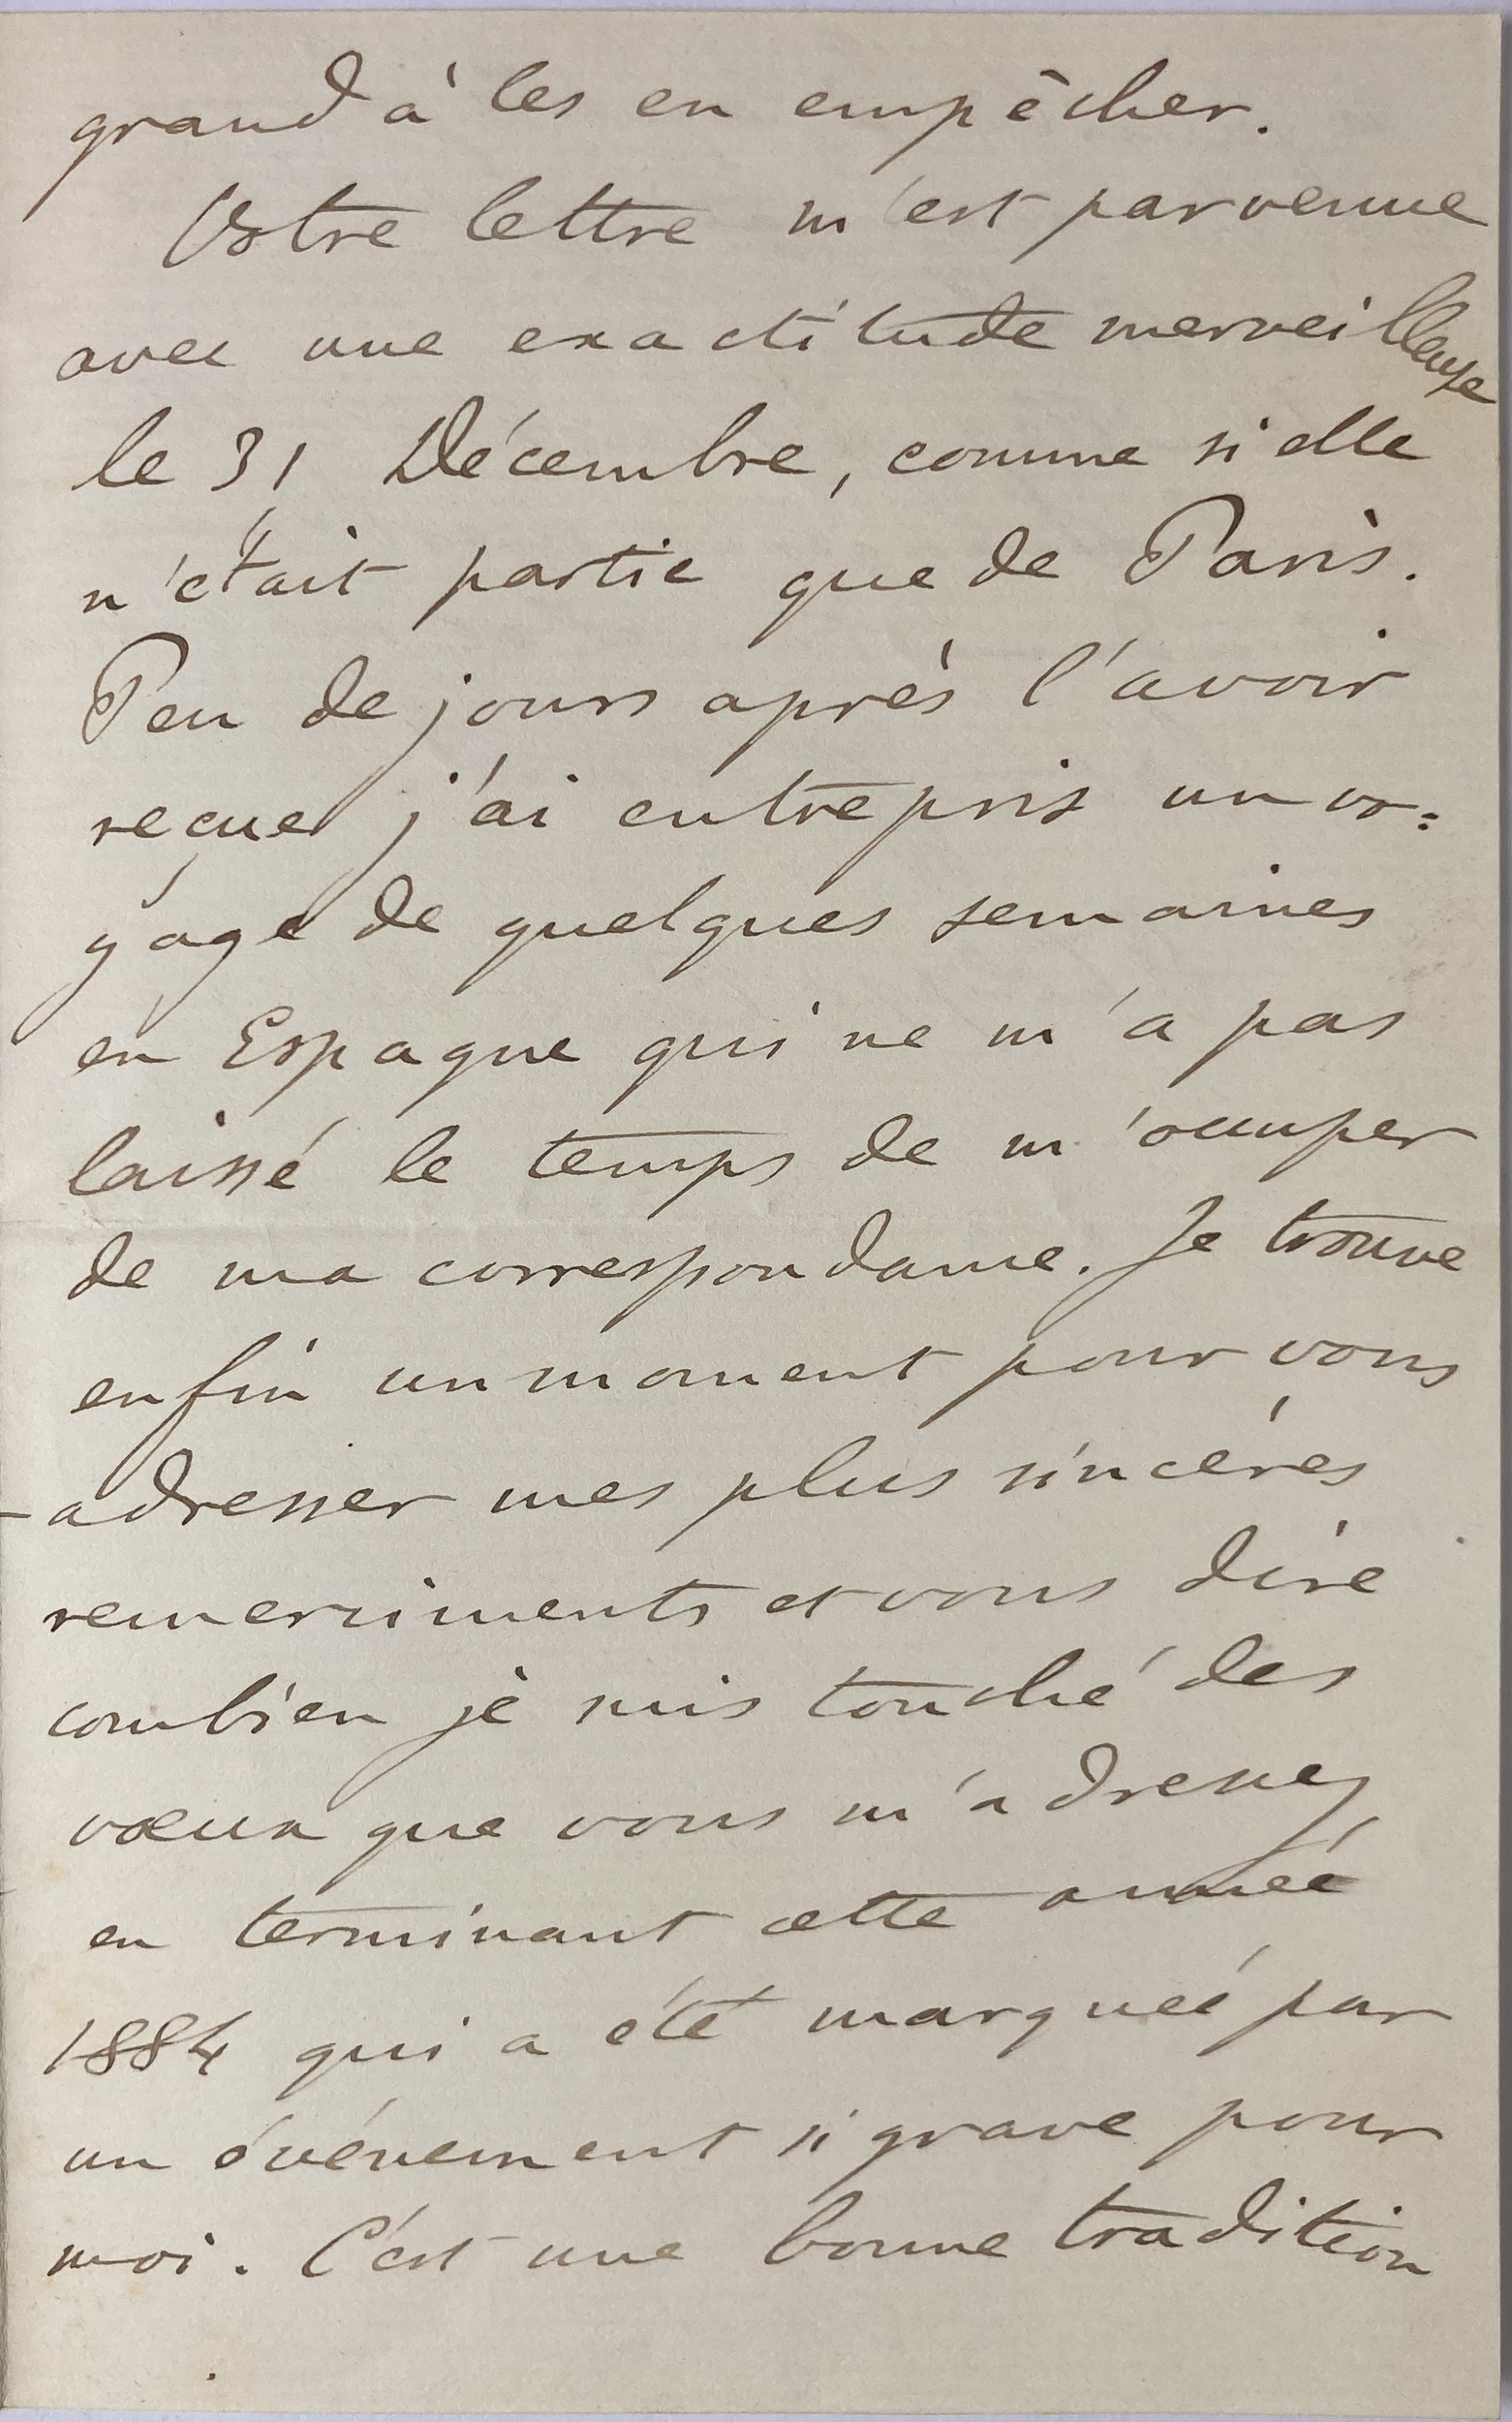 grand à les en empêcher.
Votre lettre m'est parvenue
avec une exactitude merveilleuse
le 31 Décembre, comme si elle
n'était partie que de Paris.
Peu de jours après l'avoir
reçue j'ai entrepris un vo=
yage de quelques semaines
en Espagne qui ne m'a pas
laissé le temps de m'occuper
de ma correspondance. Je trouve
enfin un moment pour vous
adresser mes plus sincères
remerciments et vous dire
combien je suis touché des
vœux que vous m'adressez
en terminant cette année
1884 qui a été marquée par
un événement si grave pour
moi. C'est une bonne tradition